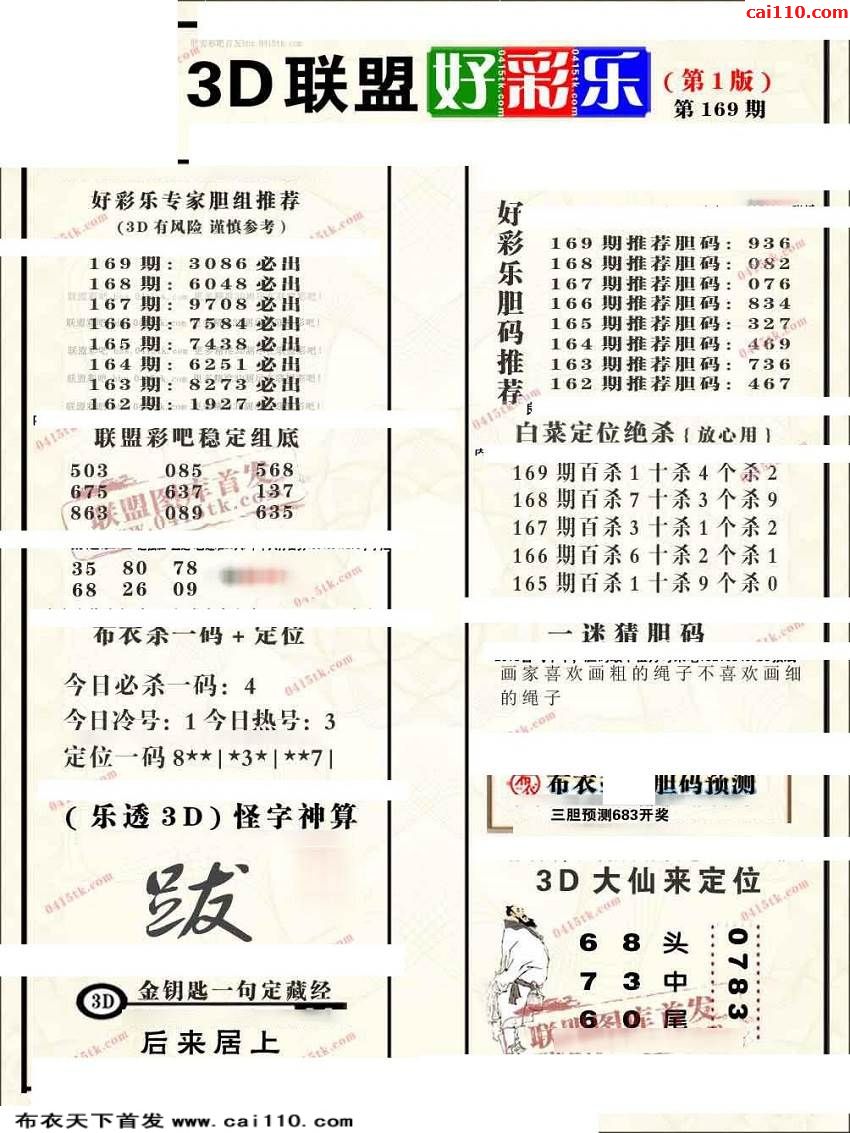 cai110.com
3D联盟好彩乐
(第1版)
第169期
好彩乐专家胆组推荐
(3D有风险 谨慎参考)
169期: 3086必出
168期: 6048必出
167期: 9708必出
166期: 7584必出
165期: 7438必出
164期: 6251必出
163期: 8273必出
162期: 1927必出
联盟彩吧稳定组底
503 085 568
675 637 137
863 089 635
联盟图库首发
www.0415tk.com
35 80 78
68 26 09
布衣杀一码+定位
今日必杀一码: 4
今日冷号: 1 今日热号: 3
定位一码 8**|*3*|**7|
(乐透3D)怪字神算
跋
3D 金钥匙一句定藏经
后来居上
好彩乐胆码推荐
169期推荐胆码: 936
168期推荐胆码: 082
167期推荐胆码: 076
166期推荐胆码: 834
165期推荐胆码: 327
164期推荐胆码: 469
163期推荐胆码: 736
162期推荐胆码: 467
白菜定位绝杀{放心用}
169期百杀1十杀4个杀2
168期百杀7十杀3个杀9
167期百杀3十杀1个杀2
166期百杀6十杀2个杀1
165期百杀1十杀9个杀0
一迷猜胆码
画家喜欢画粗的绳子不喜欢画细
的绳子
布衣 胆码预测
三胆预测683开奖
3D大仙来定位
6 8 头
7 3 中
6 0 尾
0783
联盟图库首发
布衣天下首发 www.cai110.com